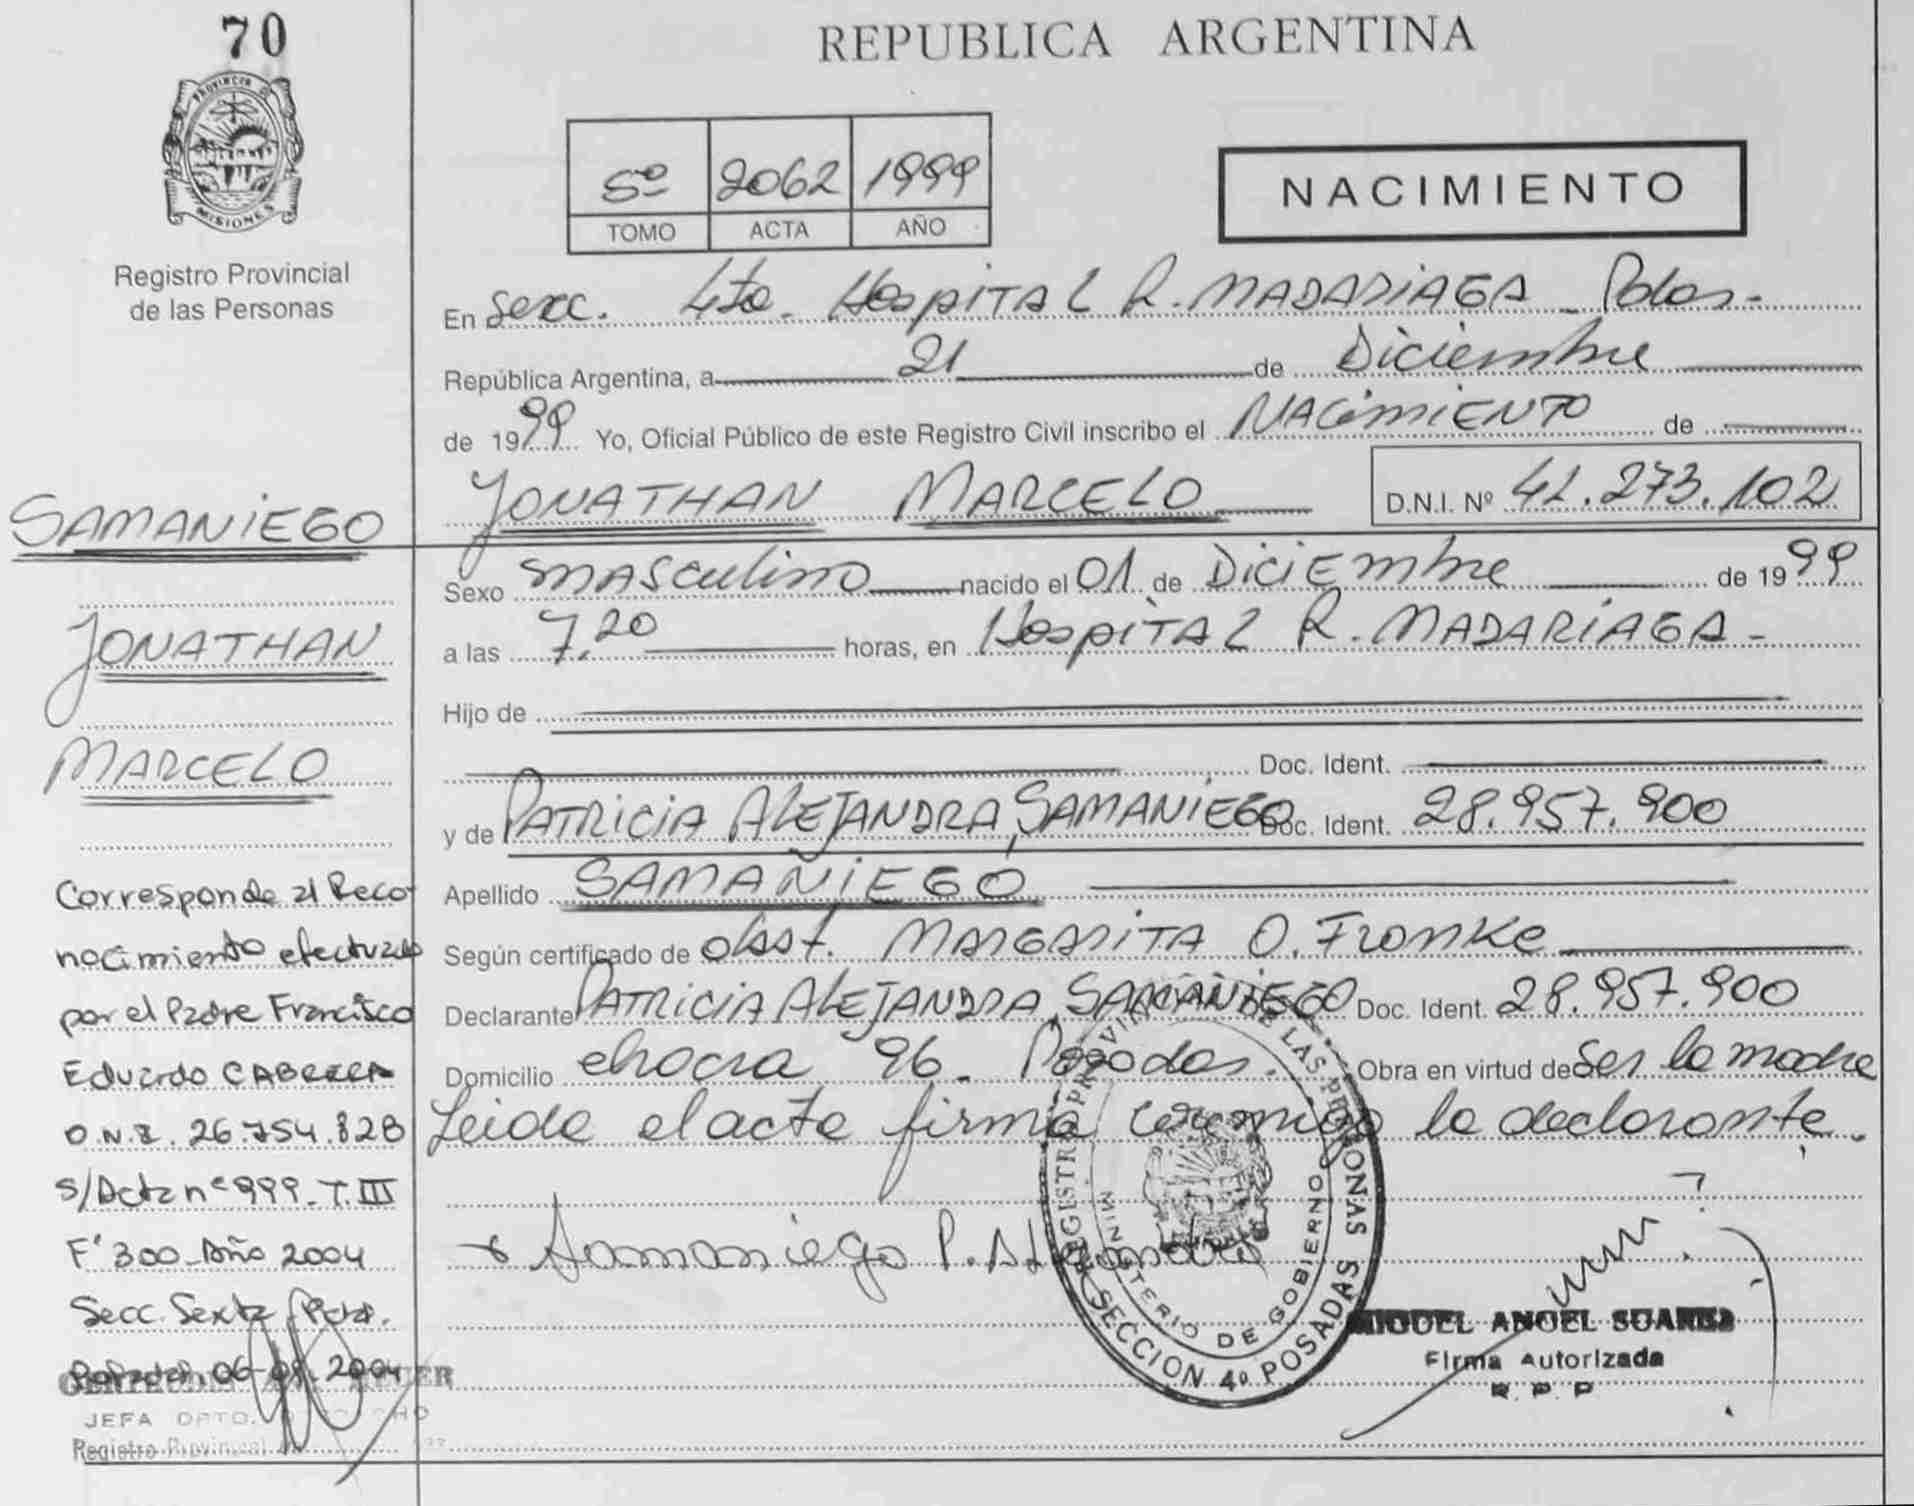 70
REPUBLICA ARGENTINA
PROVINCIA DE
MISIONES
Registro Provincial
de las Personas
5º 2062 1999
TOMO ACTA AÑO
NACIMIENTO
En Secc. 4ta. Hospital R. MADARIAGA Pdas.-
República Argentina, a 21 de Diciembre
de 1999 Yo, Oficial Público de este Registro Civil inscribo el NACIMIENTO de
JONATHAN MARCELO D.N.I. Nº 42.273.102
Sexo MASCULINO nacido el 01 de DICIEMBRE de 1999
a las 7,20 horas, en Hospital R. MADARIAGA -
Hijo de
Doc. Ident.
y de PATRICIA ALEJANDRA, SAMANIEGO Doc. Ident. 28.957.900
Apellido SAMANIEGO
Según certificado de obst. MARGARITA O. FRONKE
Declarante PATRICIA ALEJANDRA, SAMANIEGO Doc. Ident. 28.957.900
Domicilio chacra 96. Posadas. Obra en virtud de Ser la madre
Leida el acta firma conmigo la declarante.
Samaniego P.
SAMANIEGO
JONATHAN
MARCELO
Corresponde al Reco
nocimiento efectuado
por el Padre Francisco
Eduardo CABRERA
D.N.I. 26.754.828
S/Acta nº 999-T.III
Fº 300-Año 2004
Secc. Sexta Pdas.
Posadas, 06-08-2004
JEFA DPTO.
Registro Provincial
REGISTRO PROVINCIAL DE LAS PERSONAS
MINISTERIO DE GOBIERNO
SECCION 4º POSADAS
MIGUEL ANGEL SUAREZ
Firma Autorizada
R. P. P